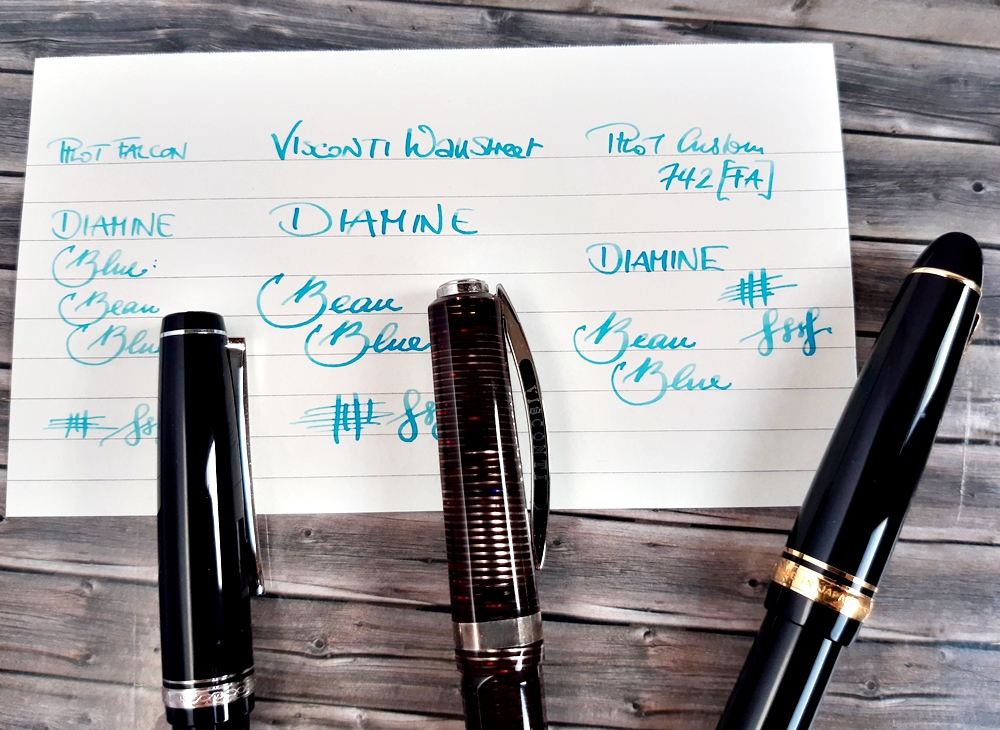 PILOT FALCON
DIAMINE
Blue:
Beau
Blue
VISCONTI WallStreet
DIAMINE
Beau
Blue
PILOT Custom
742 [FA]
DIAMINE
Beau
Blue
VISCONTI
JAPAN